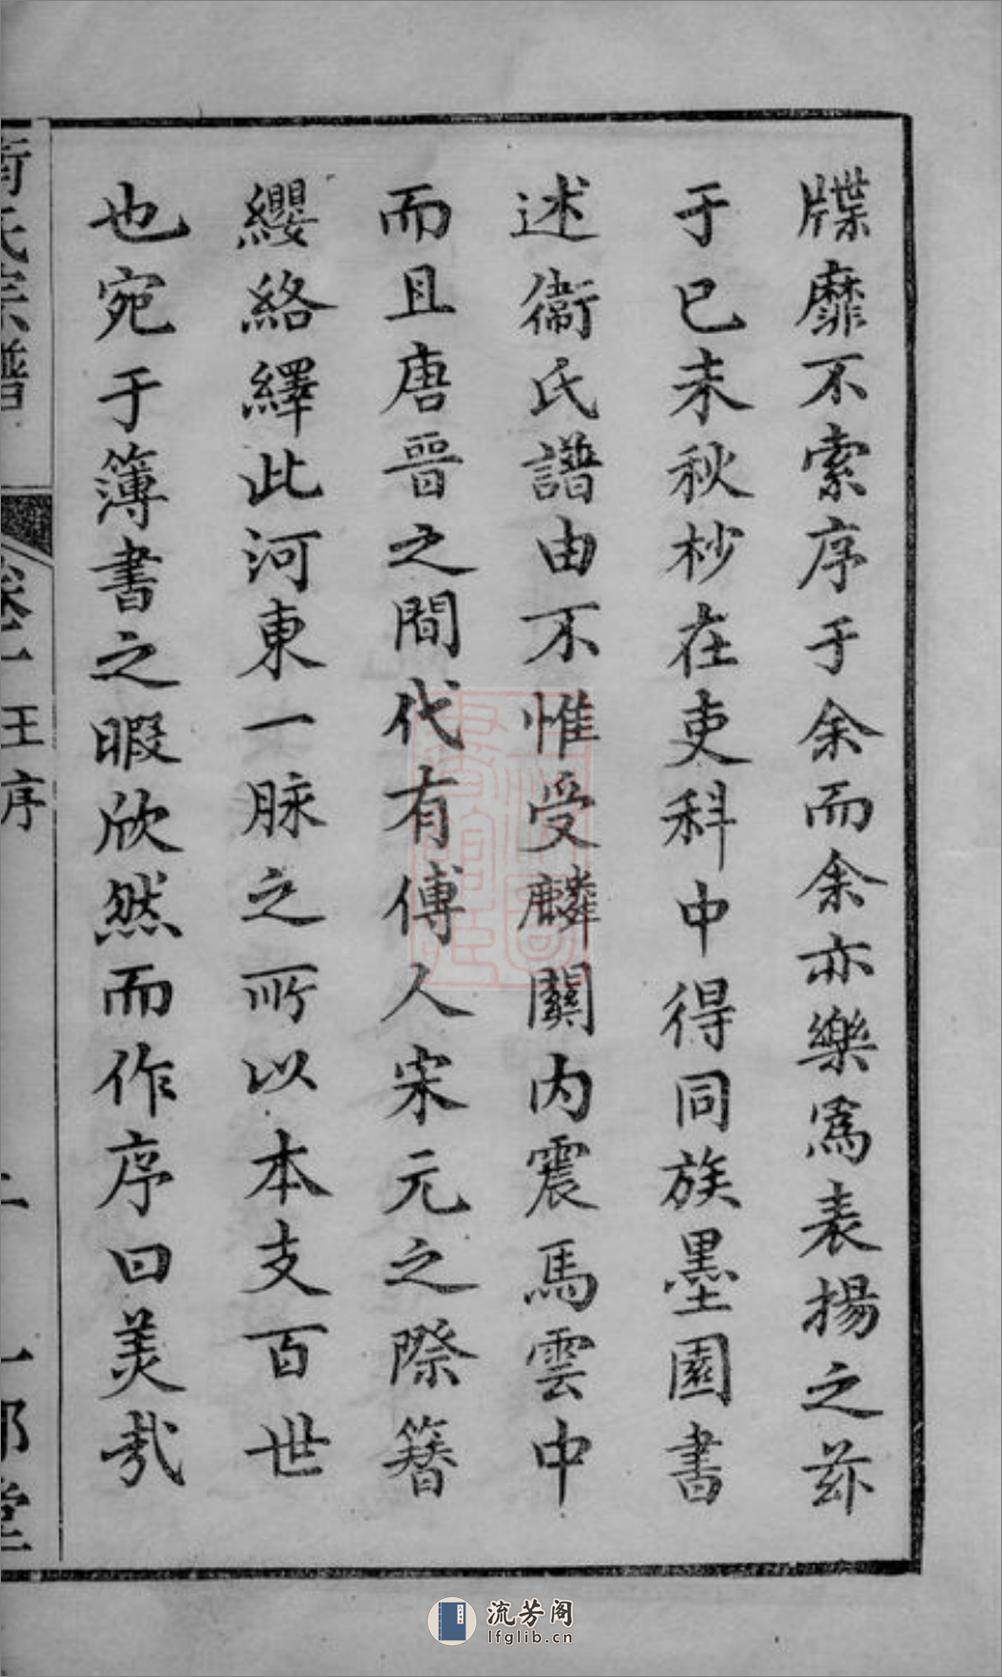 牒靡不索序于余而余亦樂爲表揚之茲
于已未秋杪在吏科中得同族墨園書
述衞氏譜由不惟受麟關内震馬雲中
而且唐晉之間代有傳人宋元之際簮
纓絡繹此河東一脉之所以本支百世
也宛于簿書之暇欣然而作序曰美哉
衛氏宗譜 卷一 王序 二 一邨堂
流芳阁
lfglib.cn